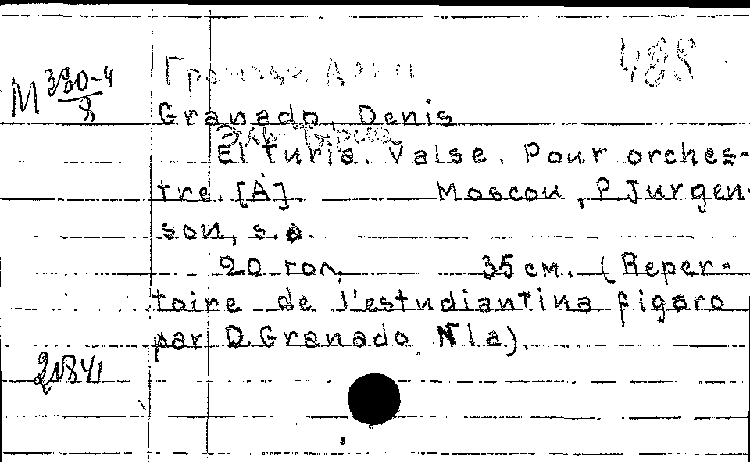 488
M 380-4
8
Granado, Denis
El Turia. Valse. Pour orches-
tre. [A] Moscou, P. Jurgen-
son, s.a.
20 гол. 35 см. (Reper-
toire de l'estudiantina figaro
par D. Granado N 1a).
21841